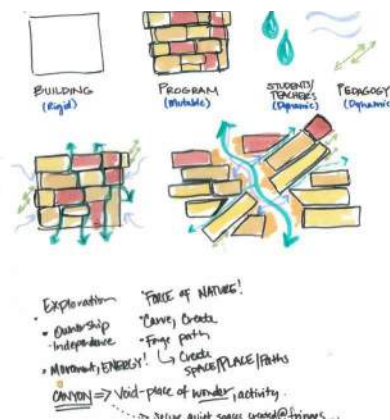 BUILDING
(Rigid)
PROGRAM
(Mutable)
STUDENTS/
TEACHERS
(Dynamic)
PEDAGOGY
(Dynamic
Exploration
• Ownership
• Independence
• Movement, ENERGY!
"FORCE OF NATURE!
• Carve, Create
• Forge path
↳ Create
SPACE/PLACE/Paths
CANYON => Void-place of wonder, activity...
quiet spaces created @ fringes...